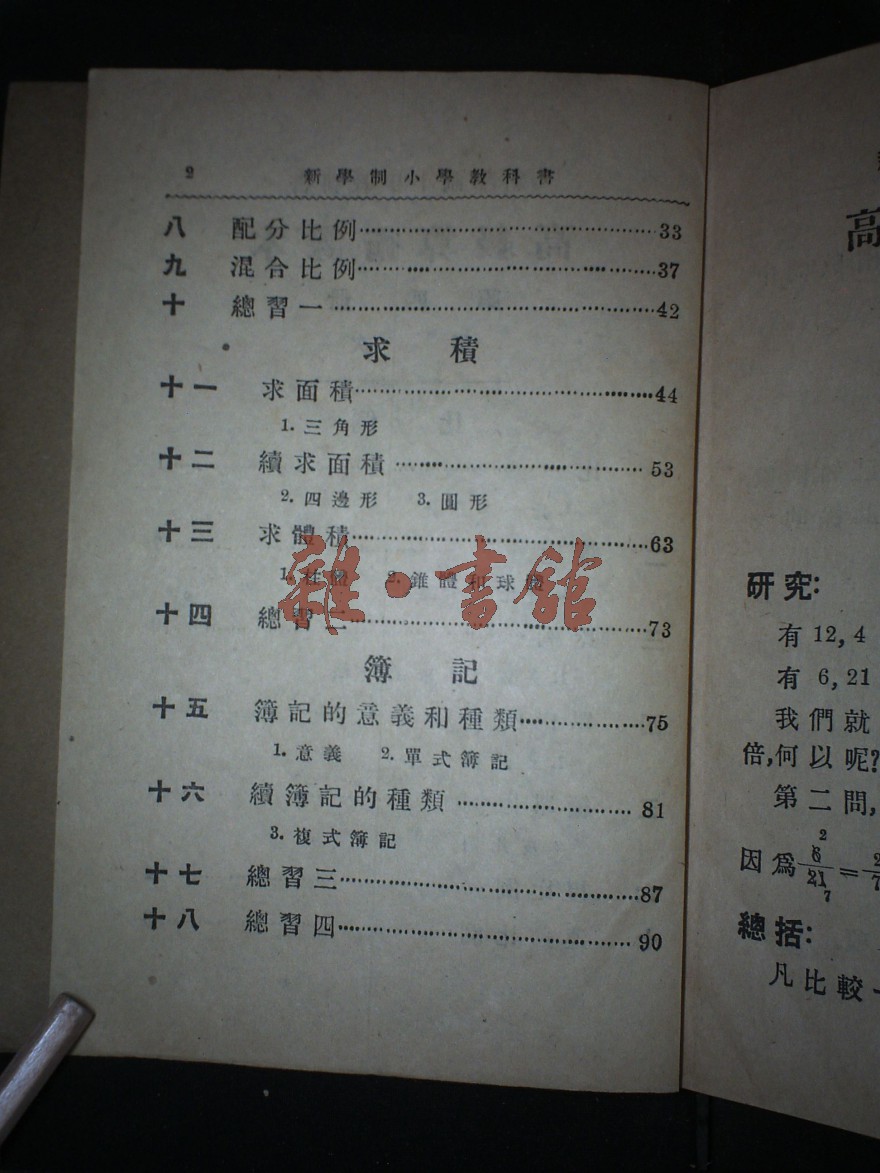 2 新學制小學教科書
八 配分比例……33
九 混合比例……37
十 總習一……42
求積
十一 求面積……44
1. 三角形
十二 續求面積……53
2. 四邊形 3. 圓形
十三 求體積……63
1. 柱體 2. 錐體和球體
十四 總習二……73
簿記
十五 簿記的意義和種類……75
1. 意義 2. 單式簿記
十六 續簿記的種類……81
3. 複式簿記
十七 總習三……87
十八 總習四……90
雜·書館
高
研究:
有 12, 4
有 6, 21
我們就
倍,何以呢?
第二問,
因爲 6/21 = 2/7
2
7
總括:
凡比較一